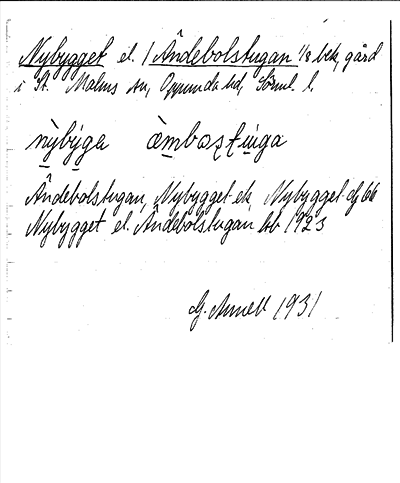 Nybygget el. / Ändebolstugan 1/8 bek, gård
i St. Malms sn, Oppunda hd, Söml. l.
nỳbýga àmbostúga
Ändebolstugan, Nybygget ek, Nybygget
Nybygget el. Ändebolstugan bb 1923
G. Annell 1931